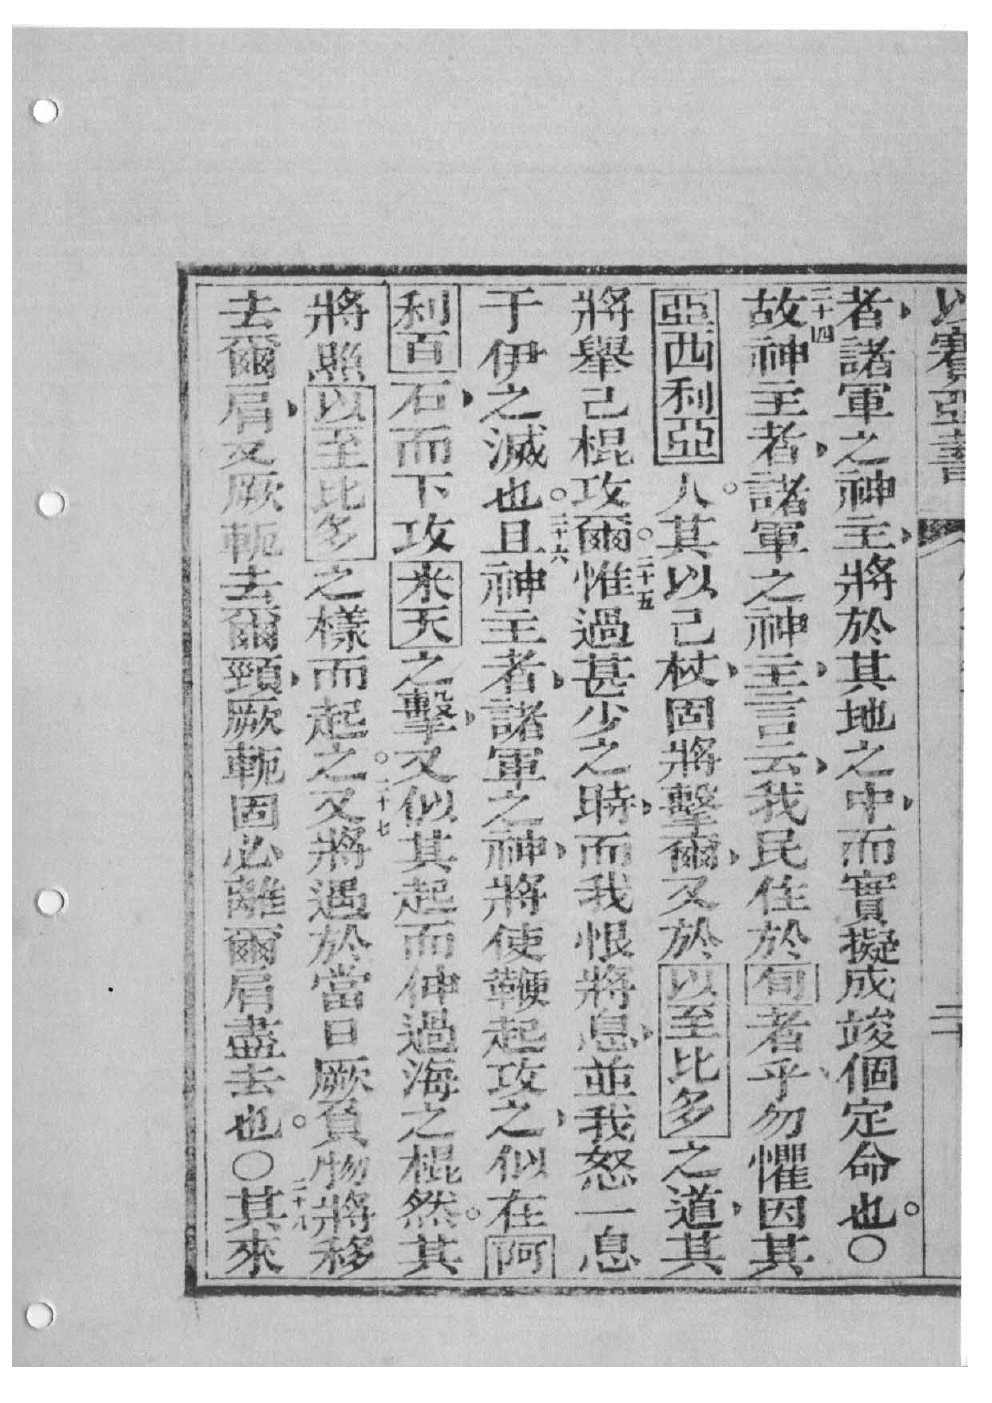 以賽亞書
二十
者、諸軍之神主、將於其地之中、而實擬成竣個定命也。〇
二十四故神主者、諸軍之神主、言云、我民住於旬者乎、勿懼因其
亞西利亞人。其以己杖、固將擊爾、又於以至比多之道、其
將舉己棍攻爾。二十五惟過甚少之時、而我恨將息、並我怒一息
于伊之滅也。二十六且神主者、諸軍之神、將使鞭起攻之、似在阿
利百石、而下攻米天之擊、又似其起而伸過海之棍然。其
將照以至比多之樣而起之。二十七又將遇於當日厥負物將移
去爾肩、及厥軛去爾頸、厥軛固必離爾肩盡去也。〇二十八其來